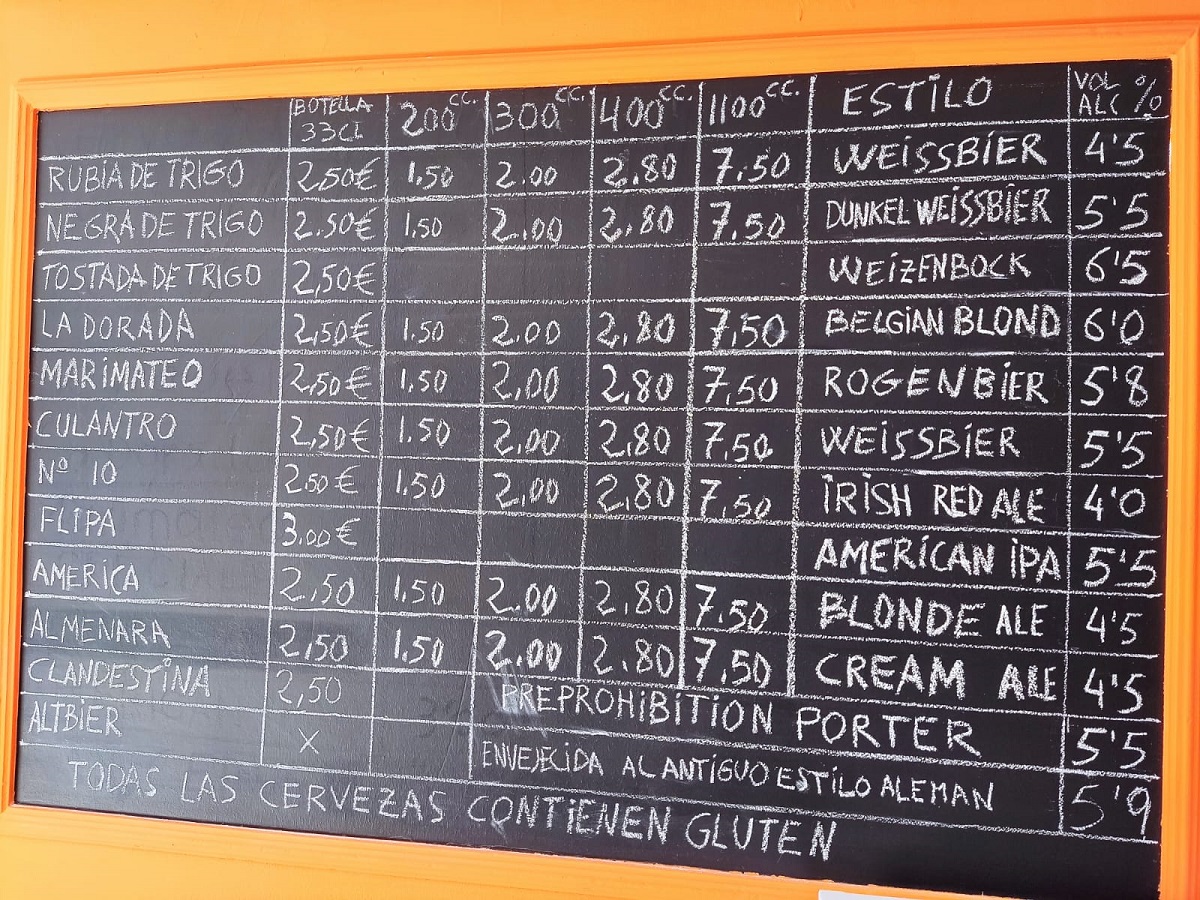 BOTELLA 33Cl 200cc. 300cc. 400cc. 1100cc. ESTiLO VOL ALC %
RUBiA DE TRiGO 2,50€ 1,50 2.00 2.80 7.50 WEiSSBiER 4'5
NEGRA DE TRiGO 2.50€ 1,50 2.00 2.80 7.50 DUNKEL WEiSSBiER 5'5
TOSTADA DE TRIGO 2,50€ WEiZENBOCK 6'5
LA DORADA 2,50€ 1.50 2.00 2.80 7,50 BELGiAN BLOND 6'0
MARiMATEO 2,50€ 1,50 2,00 2,80 7,50 ROGENBiER 5'8
CULANTRO 2,50€ 1.50 2,00 2,80 7,50 WEiSSBiER 5'5
Nº 10 2,50€ 1,50 2,00 2,80 7,50 iRiSH RED ALE 4'0
FLiPA 3,00€ AMERiCAN iPA 5'5
AMERiCA 2,50 1,50 2.00 2.80 7.50 BLONDE ALE 4'5
ALMENARA 2,50 1,50 2.00 2.80 7.50 CREAM ALE 4'5
CLANDESTiNA 2,50 PREPROHiBiTiON PORTER 5'5
ALTBiER X ENVEJECiDA AL ANTiGUO ESTiLO ALEMAN 5'9
TODAS LAS CERVEZAS CONTiENEN GLUTEN